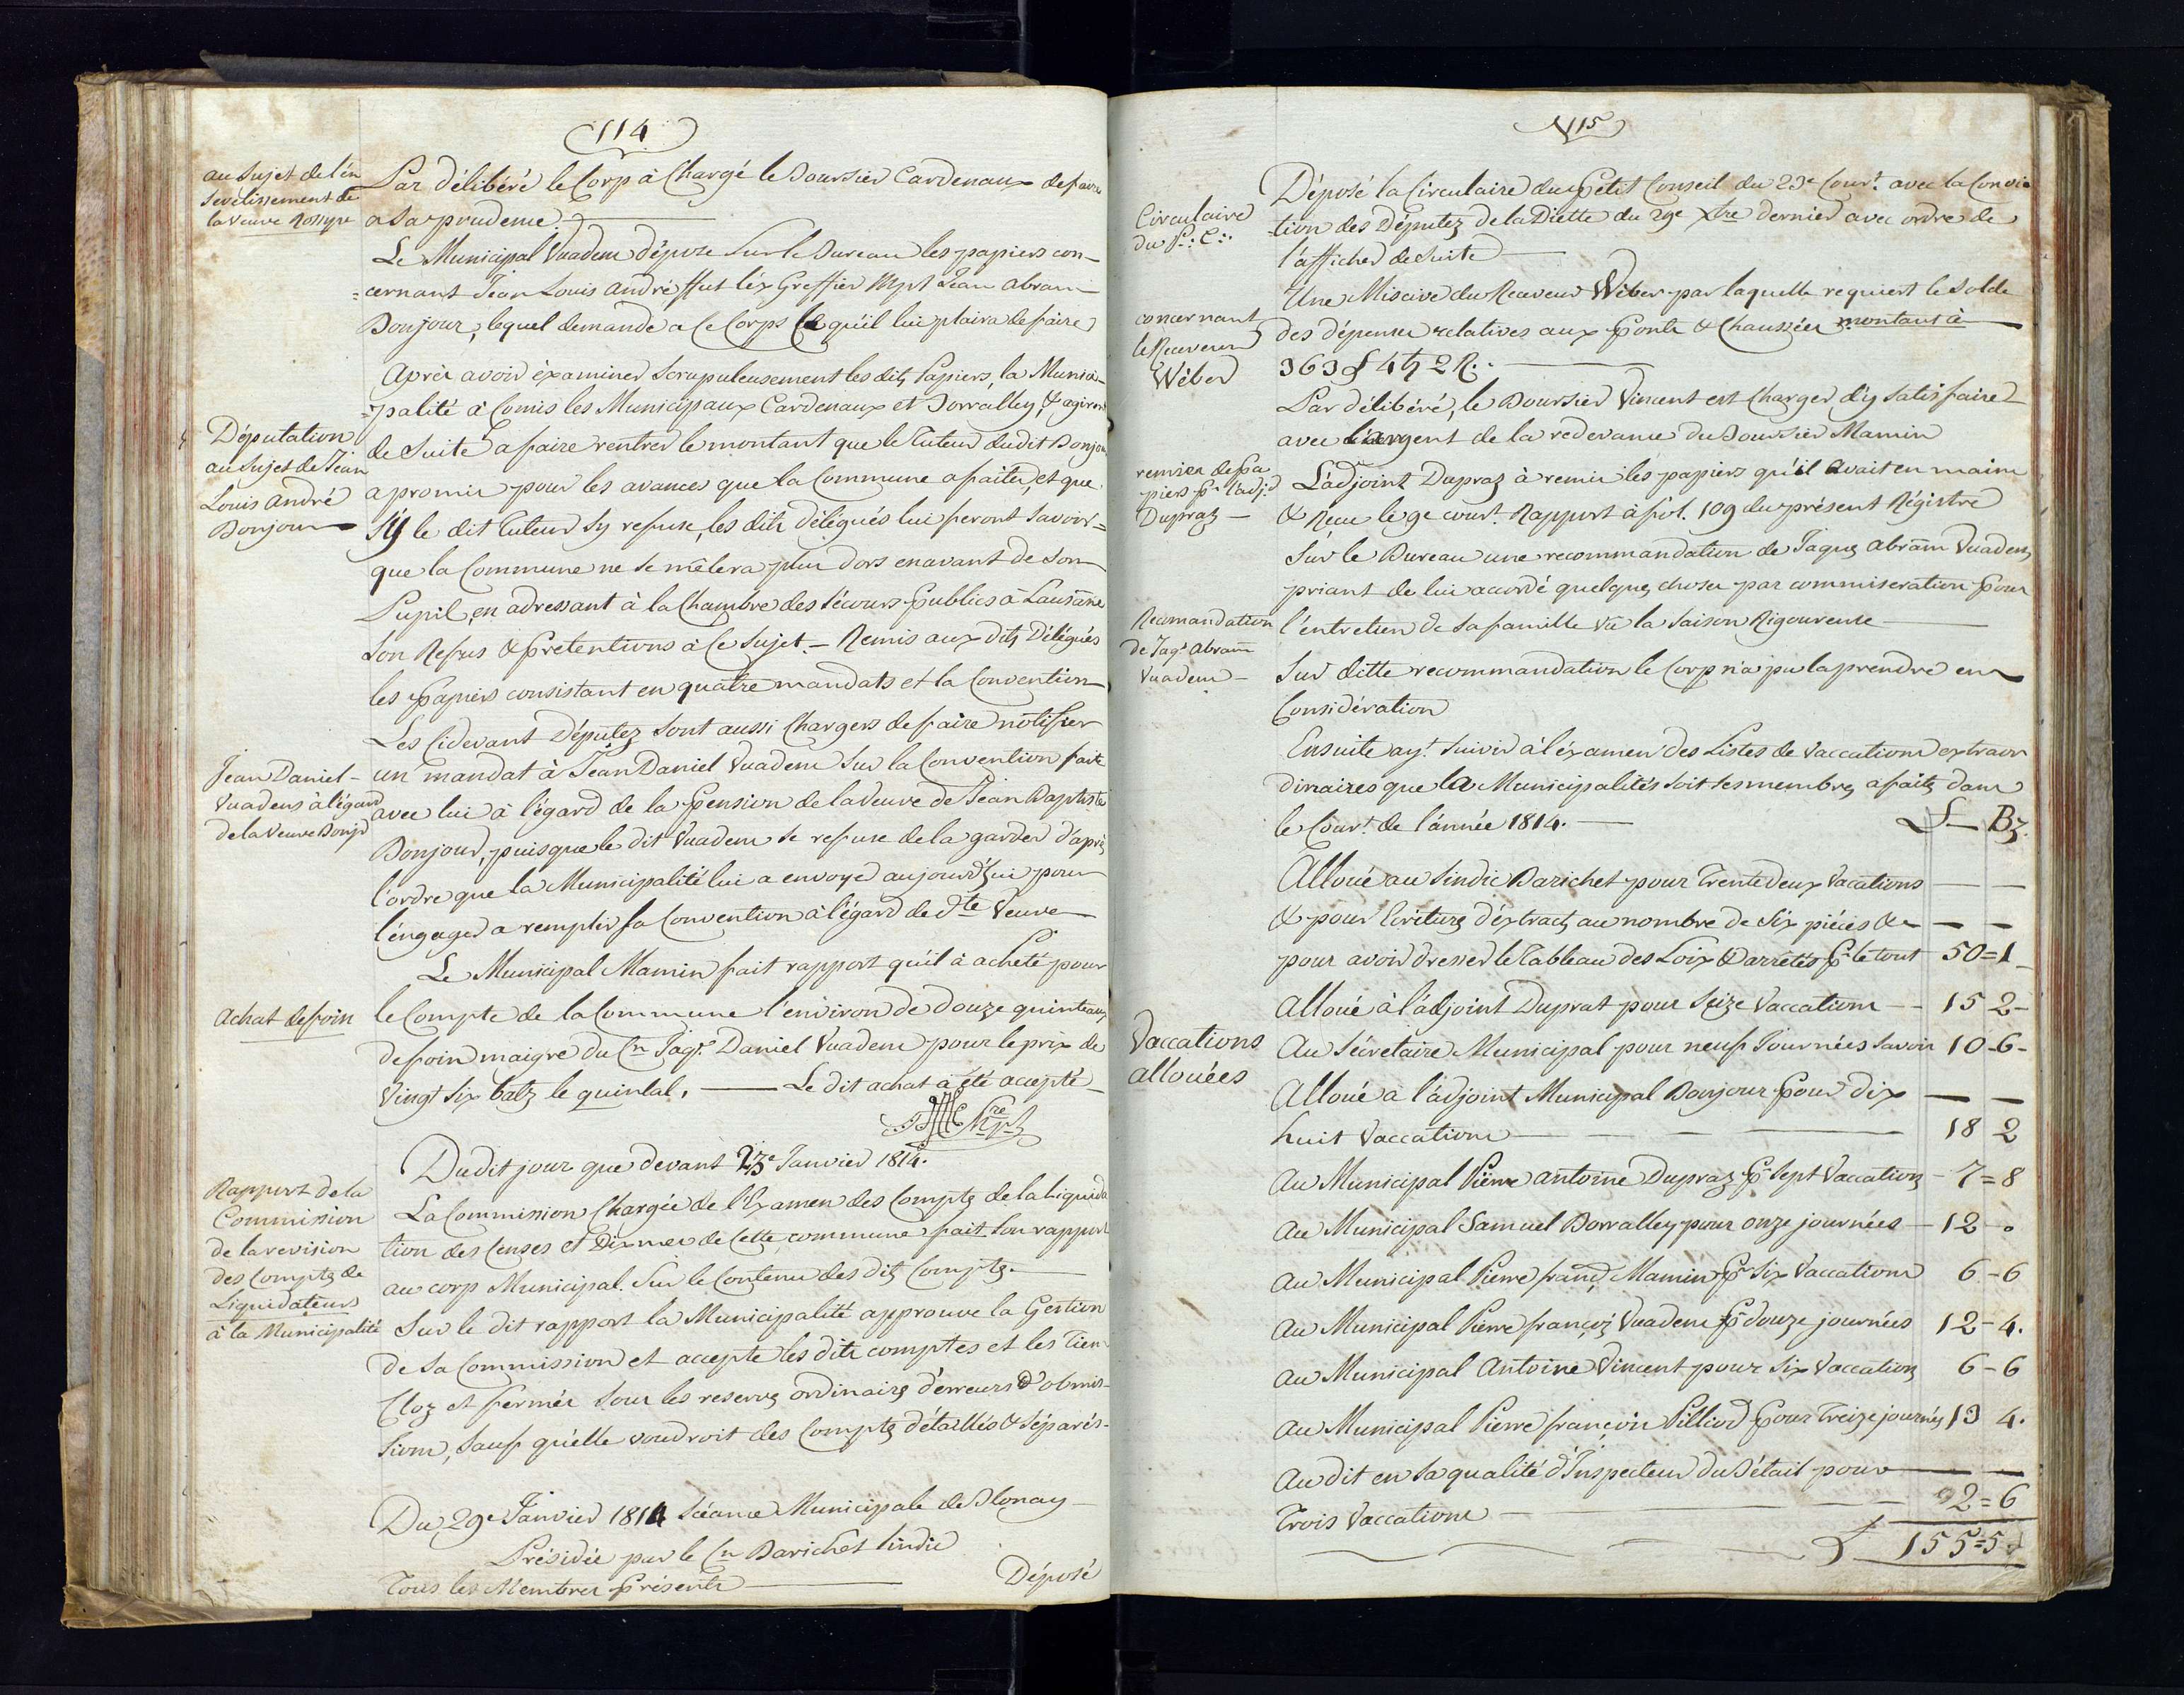 114
au Sujet de l'én
sevélissement de
la veuve Rossyre
Par délibéré le Corp à Chargé le Boursier Cardenaux de faire
a Sa prudeme.
Le Municipal Vuadens dépoze Sur le Bureau les papiers con-
=cernant Jean Louis André ffut l'éx Greffier Mpl Jean Abram
Bonjour, lequel demande a Ce Corps Ce qu'il lui plaira de faire
Après avoir éxaminer Scrupuleusement les dits Papiers, la Munici-
=palité à Comis les Municipaux Cardenaux et Dorvalley, & agiront
Députation
au Sujet de Jean
Louis André
Bonjour
de Suite a faire rentrer le montant que le Tuteur dudit Bonjour
a promis pour les avances que la Commune a faites, et que
S'y le dit Tuteur Sy refuse, les dits délégués lui feront Savoir=
que la Commune ne se mêlera plus dors enavant de Son
Pupil, en adressant à la Chambre des sécours Publics à Lausanne
Son Refus & Prétentions à Ce Sujet. – Remis aux dits Délégués
les Papiers consistant en quatre mandats et la Convention
Les Cidevant Députez Sont aussi Chargers de faire notifier
Jean Daniel –
Vuadens à l'égard
de la Veuve Bonjr
un mandat à Jean Daniel Vuadens Sur la Convention fait
avec lui à l'égard de la Pension de la Veuve de Jean Baptiste
Bonjour, puisque le dit Vuadens se refuse de la garder d'après
l'ordre que la Municipalité lui a envoyé aujourd'hui pour
l'éngager a remplir Sa Convention à l'égard de dte Veuve
Le Municipal Mamin fait rapport qu'il à acheté pour
Achat de foin
le Compte de la Commune l'énviron de douze quinteaux
de foin maigre du Cn Jaqs Daniel Vuadens pour le prix de
Vingt Six batz le quintal. — Le dit achat a été accepté
Dudit jour que devant 23e Janvier 1814.
Rapport de la
Commission
de la revision
des Comptes de
Liquidateurs
à la Municipalité
La Commission Chargée de l'Examen des Comptes de la Liquida
tion des Censes et Dixmes de Cette commune fait Son rapport
au corp Municipal. Sur le Contenu des dits Comptes.
Sur le dit rapport la Municipalité approuve la Gestion
de Sa Commission et accepte les dits comptes et les Tien
Cloz et fermés Sous les reserves ordinaires d'érreurs & d'obmis-
sions, Sauf qu'elle voudroit des Comptes détaillés & Séparés.
Du 29e Janvier 1814 Séeance Municipale de Blonay
Présidée par le Cn Barichet Sindic
Tous les Membres Présents
Déposé
115
Circulaire
du P.: C.:
Déposé la Circulaire du Petit Conseil du 23e Cour.t avec la Convic
-tion des Députez de la Diette du 29e Xbre dernier avec ordre de
l'afficher de Suite
concernant
le Receveur
Wéber
Une Missive du Receveur Wéber par laquelle requiert le Solde
des dépenses relatives aux Ponts & Chaussées montant à
363 £ 4 ẞ 2 R.
Par délibéré, le Boursier Vincent est Charger d'y Satisfaire
avec l'argent de la redevance du Boursier Mamin
remise de Pa
piers Pr l'adj.
Dupraz –
L'adjoint Dupraz à remis les papiers qu'il avait en mains
& Reçu le 9e court. Rapport à fol. 109 du présent Régistre
Recomandation
de Jaqs Abram
Vuadens –
Sur le Bureau une recommandation de Jaques Abram Vuadens
priant de lui accordé quelques choses par commiseration Pour
l'entretien de Sa famille vu la Saison Rigoureuse
Sur ditte recommandation le Corp n'a pu la prendre en
Considération
Ensuite ayt. Suivis à l'éxamen des Listes de Vaccations extraor
dinaires que la Municipalités Soit Ses membres a faits dans
le Cour.t de l'année 1814. — L – Bz.
Vaccations
allouées
Alloué au Sindic Barichet pour Trente deux Vacations — —
& pour Ecritures d'éxtracts au nombre de Six piéces & — —
pour avoir dresser le Tableau des Loix & arretés Pr le tout 50=1
Alloué à l'adjoint Duprat pour Seize Vaccations – 15 2 –
Au Sécretaire Municipal pour neuf Journées Savoir 10 – 6 –
Alloué a l'adjoint Municipal Bonjour Pour dix — —
huit Vaccations — 18 2
Au Municipal Pierre Antoine Dupraz Pr Sept Vaccations – 7=8
Au Municipal Samuel Dorvalley pour onze journées – 12 – 0
Au Municipal Pierre franç. Mamin Pr Six Vaccations 6 – 6
Au Municipal Pierre françois Vuadens Pr douze journées 12 – 4.
Au Municipal Antoine Vincent pour Six Vaccations 6 – 6
Au Municipal Pierre françois Pilliod Pour Treize journées 13 4.
Au dit en Sa qualité d'Inspecteur du Bétail pour — —
Trois Vaccations — 2=6
L 155=5